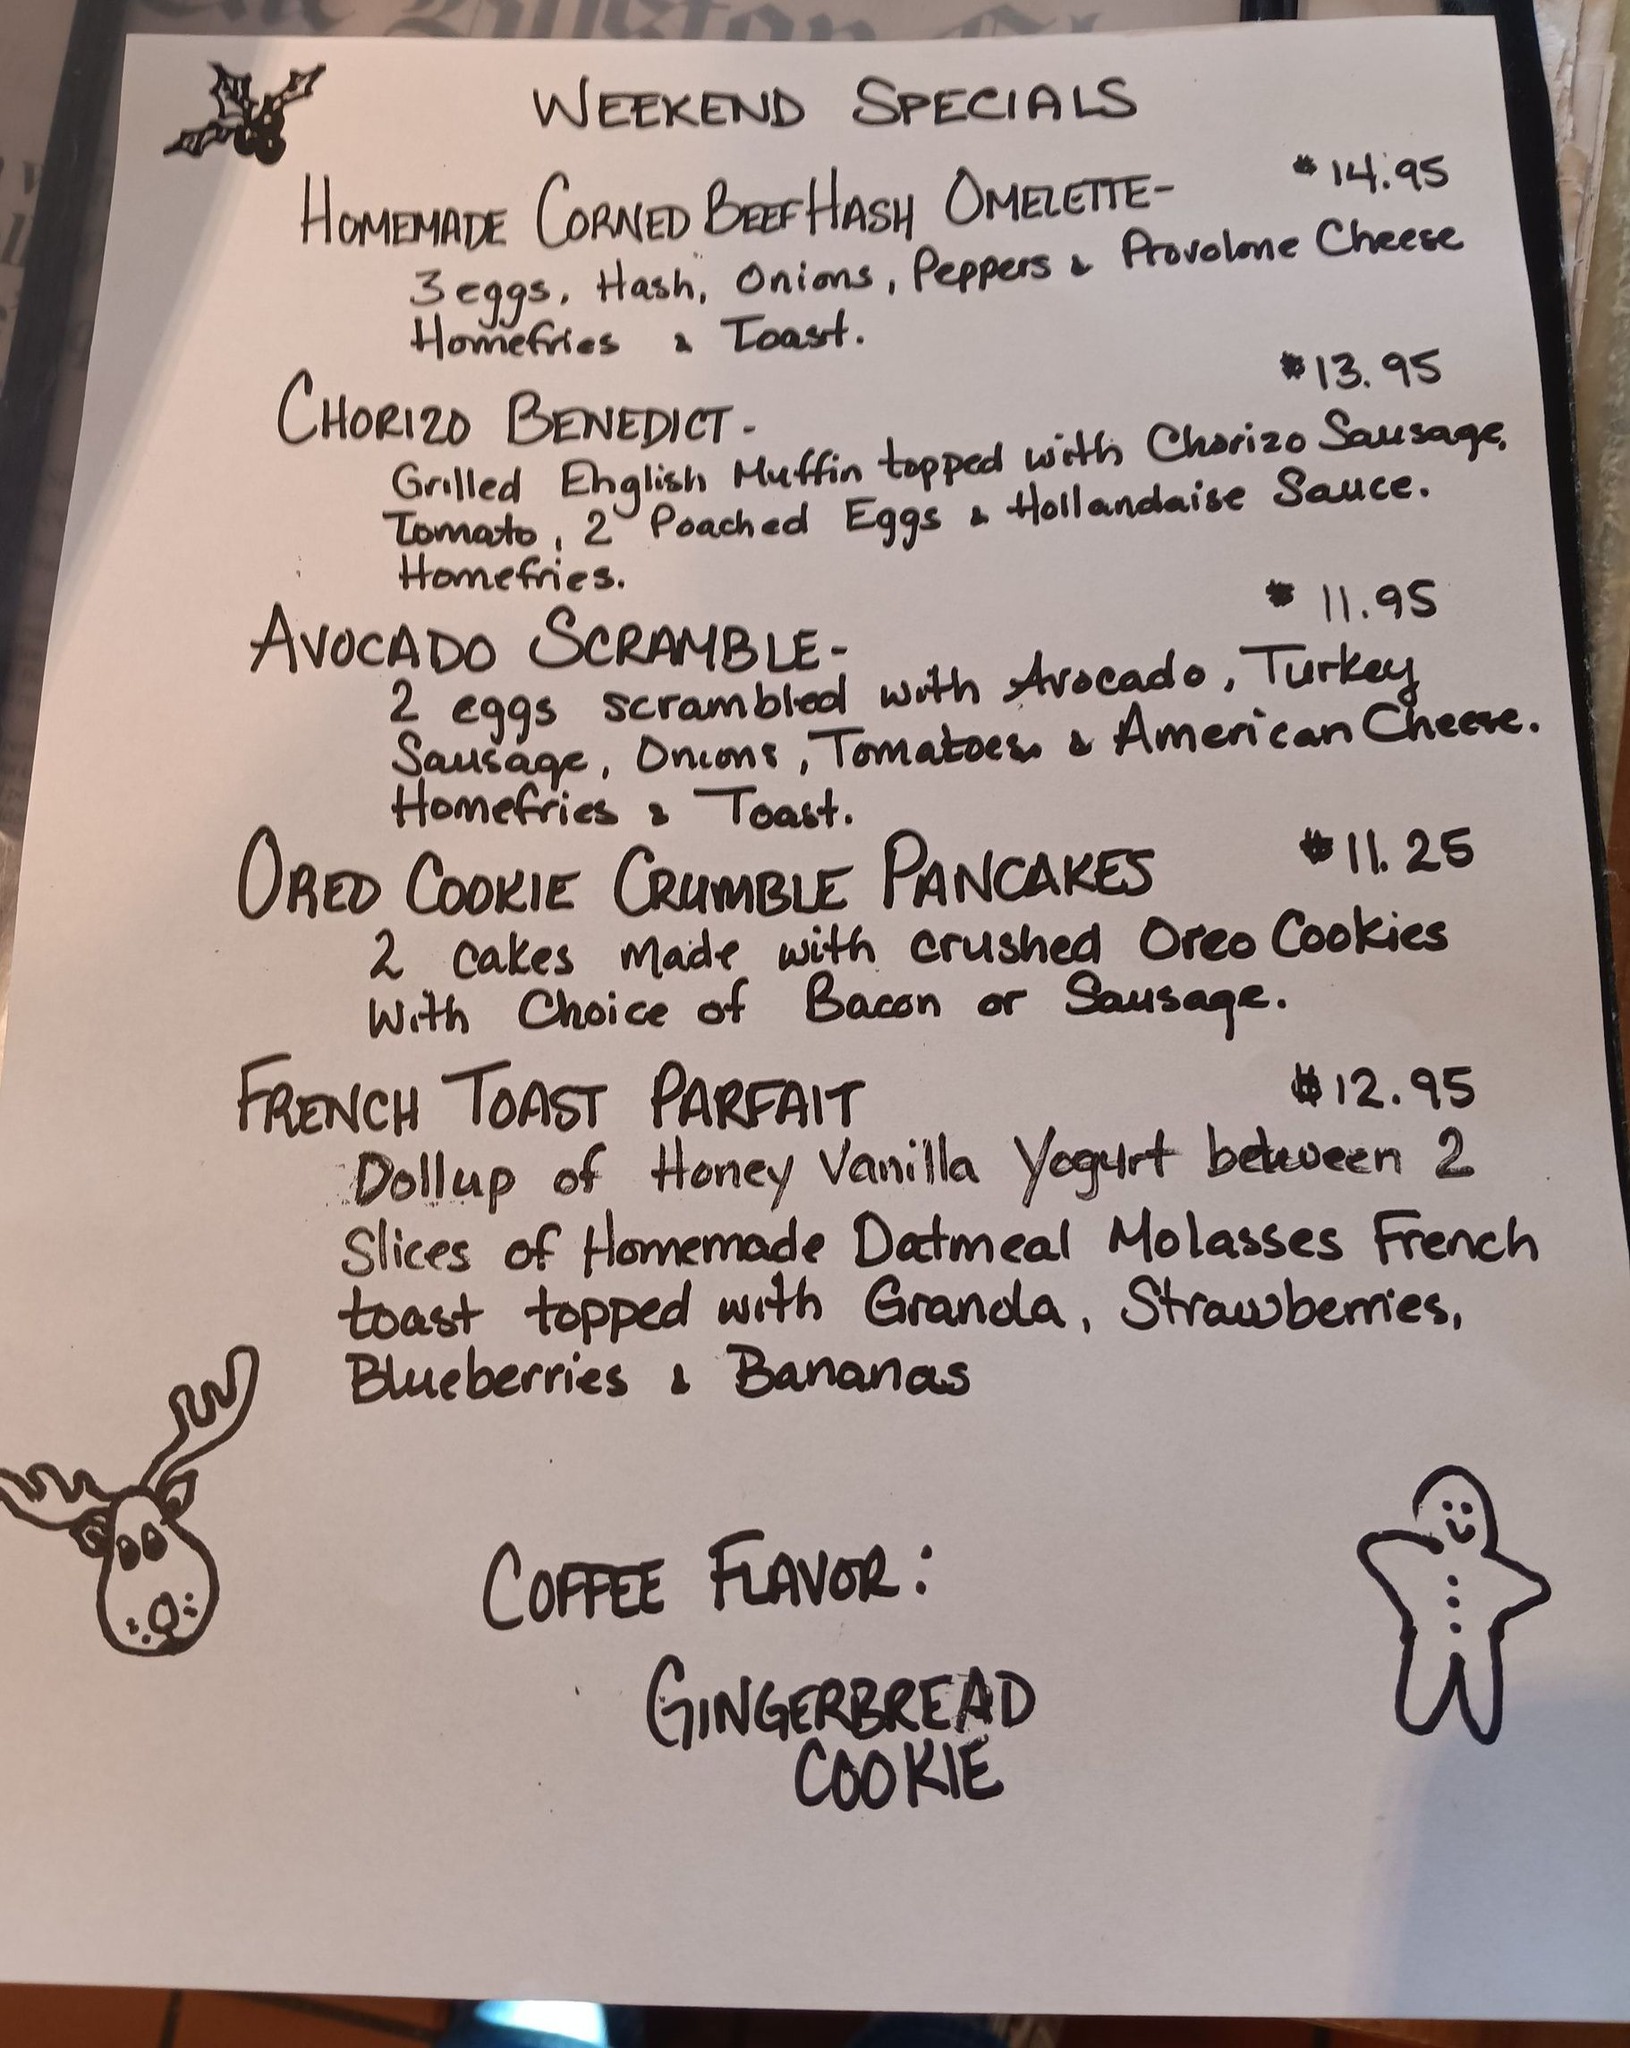 WEEKEND SPECIALS
HOMEMADE CORNED BEEF HASH OMELETTE- $14.95
3 eggs, Hash, Onions, Peppers & Provolone Cheese
Homefries & Toast.
CHORIZO BENEDICT- $13.95
Grilled English Muffin topped with Chorizo Sausage,
Tomato, 2 Poached Eggs & Hollandaise Sauce.
Homefries.
AVOCADO SCRAMBLE- $11.95
2 eggs scrambled with Avocado, Turkey
Sausage, Onions, Tomatoes & American Cheese.
Homefries & Toast.
OREO COOKIE CRUMBLE PANCAKES $11.25
2 cakes made with crushed Oreo Cookies
With Choice of Bacon or Sausage.
FRENCH TOAST PARFAIT $12.95
Dollup of Honey Vanilla Yogurt between 2
Slices of Homemade Oatmeal Molasses French
toast topped with Granola, Strawberries,
Blueberries & Bananas
COFFEE FLAVOR:
GINGERBREAD
COOKIE